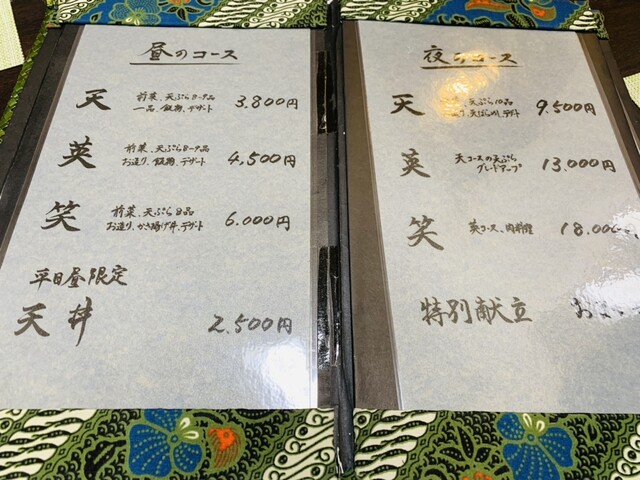 昼のコース
天 前菜、天ぷら7〜9品 3.800円
一品、飯物、デザート
英 前菜、天ぷら8〜9品 4,500円
お造り、飯物、デザート
笑 前菜、天ぷら8品 6.000円
お造り、かき揚げ丼、デザート
平日昼限定
天丼 2.500円
夜のコース
天 天ぷら10品 9.500円
デザート
英 天コースの天ぷら 13.000円
グレードアップ
笑 英コース、肉料理 18.000
特別献立